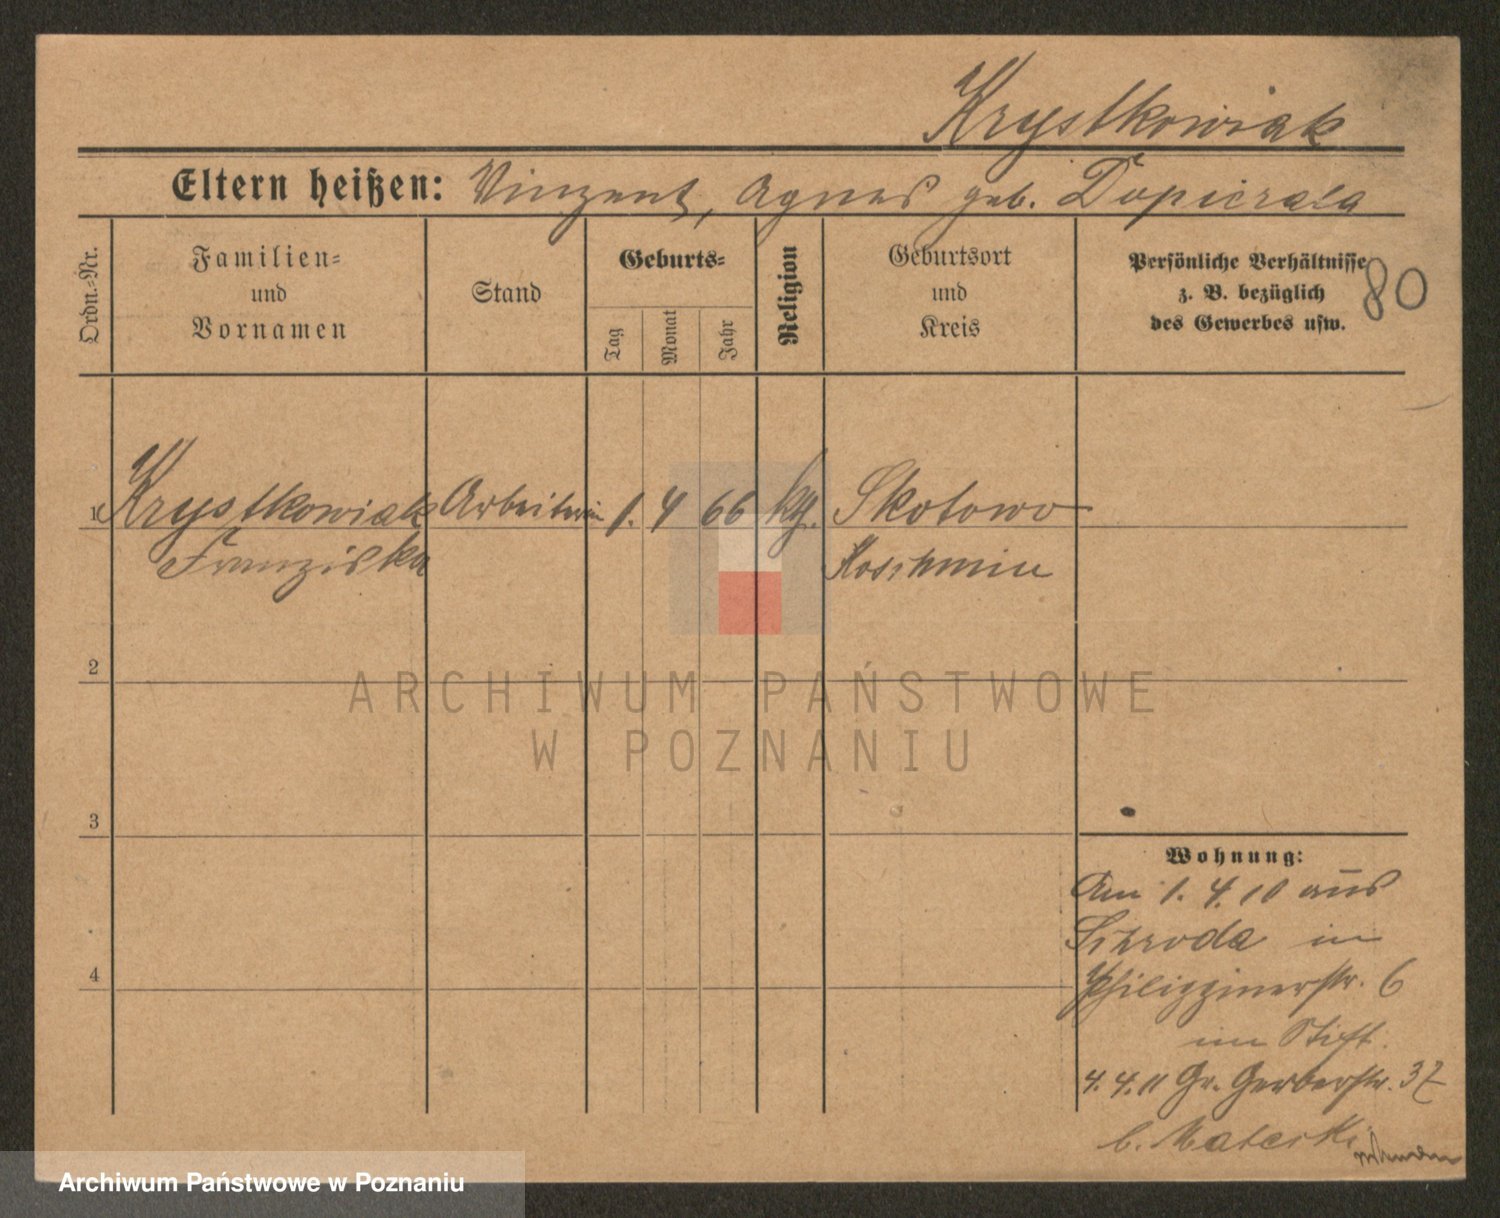 Krystkowiak
Eltern heißen: Vinzent, Agnes geb. Dopierala
Ordn.-Nr.
Familien- und Vornamen
Stand
Geburts-
Tag
Monat
Jahr
Religion
Geburtsort und Kreis
Persönliche Verhältnisse
z. B. bezüglich
des Gewerbes usw.
80
1 Krystkowiak Arbeiterin 1. 4 66 kth. Skolowo
Franziska Koschmin
2
ARCHIWUM PAŃSTWOWE
W POZNANIU
3
Wohnung:
Am 1. 4. 10 aus
Schroda in
Philippinerstr. 6
im Stift.
4
4. 4. 11 Gr. Gerberstr. 37
b. Mateckí
Archiwum Państwowe w Poznaniu